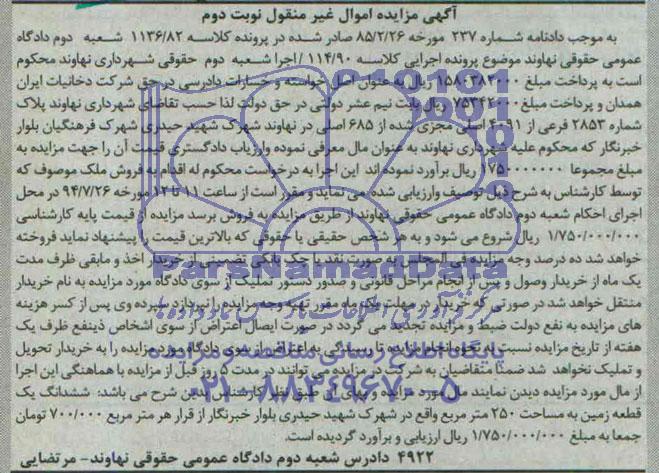 آگهی مزایده اموال غیر منقول نوبت دوم
به موجب دادنامه شماره ۲۳۷ مورخه ۸۵/۲/۲۶ صادر شده در پرونده کلاسه ۱۱۳۶/۸۲ شعبه دوم دادگاه
عمومی حقوقی نهاوند موضوع پرونده اجرایی کلاسه ۱۱۴/۹۰/اجرا شعبه دوم حقوقی شهرداری نهاوند محکوم
است به پرداخت مبلغ ریال به عنوان اصل خواسته و خسارات دادرسی در حق شرکت دخانیات ایران
همدان و پرداخت مبلغ ریال بابت نیم عشر دولتی در حق دولت لذا حسب تقاضای شهرداری نهاوند پلاک
شماره ۲۸۵۳ فرعی از ۴۰۹۱ اصلی مجزی شده از ۶۸۵ اصلی در نهاوند شهرک شهید حیدری شهرک فرهنگیان بلوار
خبرنگار که محکوم علیه شهرداری نهاوند به عنوان مال معرفی نموده وارزیاب دادگستری قیمت آن را جهت مزایده به
مبلغ مجموعا ریال برآورد نموده اند این اجرا به درخواست محکوم له اقدام به فروش ملک موصوف که
توسط کارشناس به شرح ذیل توصیف وارزیابی شده می نماید و مقرر است از ساعت ۱۱ تا ۱۲ مورخه ۹۴/۷/۲۶ در محل
اجرای احکام شعبه دوم دادگاه عمومی حقوقی نهاوند از طریق مزایده به فروش برسد مزایده از قیمت پایه کارشناسی
۱/۷۵۰/۰۰۰/۰۰۰ ریال شروع می شود و به هر شخص حقیقی یا حقوقی که بالاترین قیمت را پیشنهاد نماید فروخته
خواهد شد ده درصد وجه مزایده فی المجلس به صورت نقد یا چک بانکی تضمینی از خریدار اخذ و مابقی ظرف مدت
یک ماه از خریدار وصول و پس از انجام مراحل قانونی و صدور دستور تملیک از سوی دادگاه مورد مزایده به نام خریدار
منتقل خواهد شد در صورتی که خریدار در مهلت یک ماه مقرر بقیه وجه مزایده را نپردازد سپرده وی پس از کسر هزینه
های مزایده به نفع دولت ضبط و مزایده تجدید می گردد در صورت ایصال اعتراض از سوی اشخاص ذینفع ظرف یک
هفته از تاریخ مزایده نسبت به نحوه انجام مزایده تا رسیدگی به اعتراض از سوی دادگاه مورد مزایده را به خریدار تحویل
و تملیک نخواهد شد ضمنا متقاضیان به شرکت در مزایده می توانند در مدت ۵ روز قبل از مزایده با هماهنگی این اجرا
از مال مورد مزایده دیدن نمایند مال مورد مزایده و بهای آن طبق نظر کارشناس بدین شرح می باشد: ششدانگ یک
قطعه زمین به مساحت ۲۵۰ متر مربع واقع در شهرک شهید حیدری بلوار خبرنگار از قرار هر متر مربع ۷۰۰/۰۰۰ تومان
جمعا به مبلغ ۱/۷۵۰/۰۰۰/۰۰۰ ریال ارزیابی و برآورد گردیده است.
۴۹۲۲ دادرس شعبه دوم دادگاه عمومی حقوقی نهاوند- مرتضایی
ParsNamadData
پایگاه اطلاع رسانی مناقصه و مزایده
۰۲۱-۸۸۳۴۹۶۷۰-۵